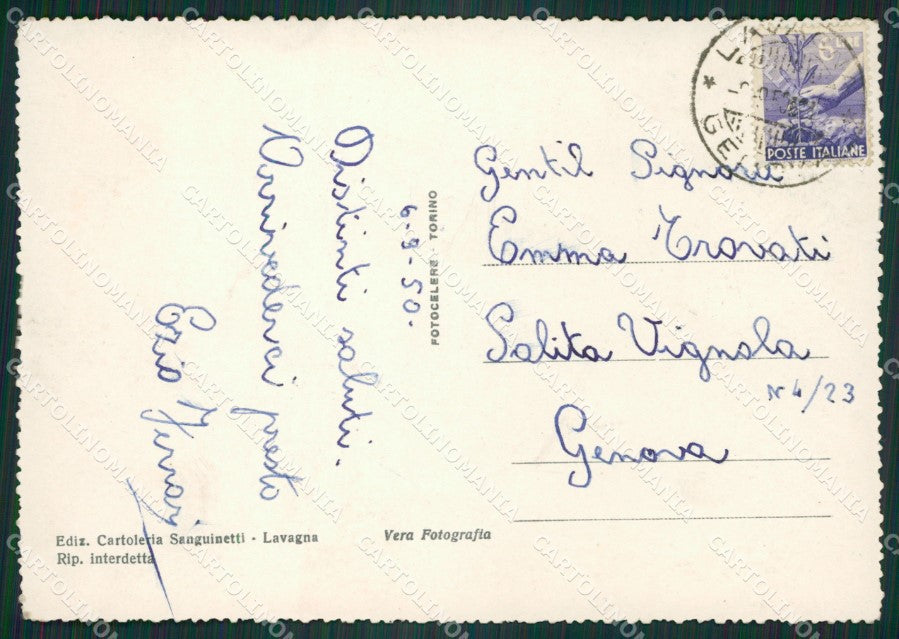 6-9-50.
Distinti saluti.
Arrivederci presto
Ezio
FOTOCELERE - TORINO
POSTE ITALIANE
Gentil Signora
Emma Trovati
Salita Vignola
N 4/23
Genova
Ediz. Cartoleria Sanguinetti - Lavagna
Rip. interdetta
Vera Fotografia
CARTOLINOMANIA